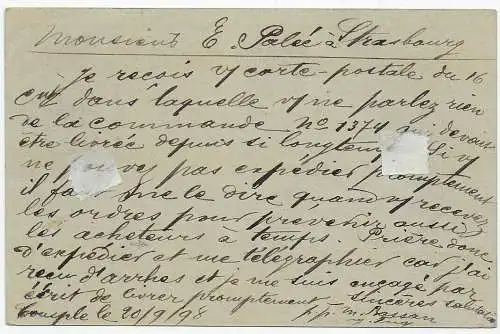 Monsieur E. Palée à Strasbourg
Je reçois v/ carte-postale du 16
ct dans laquelle v/ ne parlez rien
de la commande No 1374 qui devait
être livrée depuis si longtemps Si v/
ne pouvez pas expédier promptement
il faut me le dire quand v/ recevez
les ordres pour prévenir aussi
les acheteurs à temps. Prière donc
d'expédier et me télégraphier car j'ai
reçu d'arrhes et je me suis engagé par
écrit de livrer promptement. Sincères salutations
le 20/9/98 p.p. m.